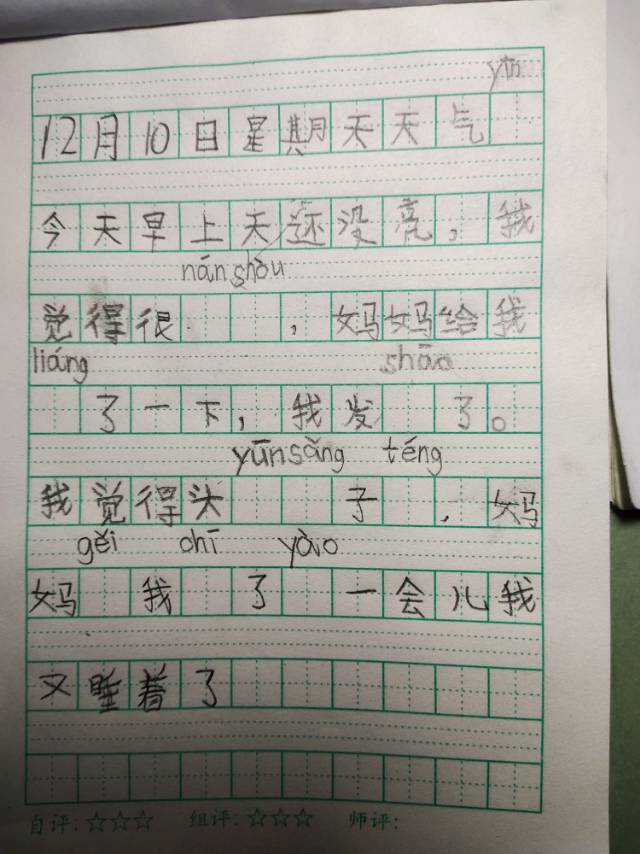 yīn
12月10日星期天天气
今天早上天还没亮，我
nánshòu
觉得很，妈妈给我
liáng shāo
了一下，我发了。
yūnsǎng téng
我觉得头子，妈
gěi chī yào
妈我了一会儿我
又睡着了
自评：☆☆☆ 组评：☆☆☆ 师评：